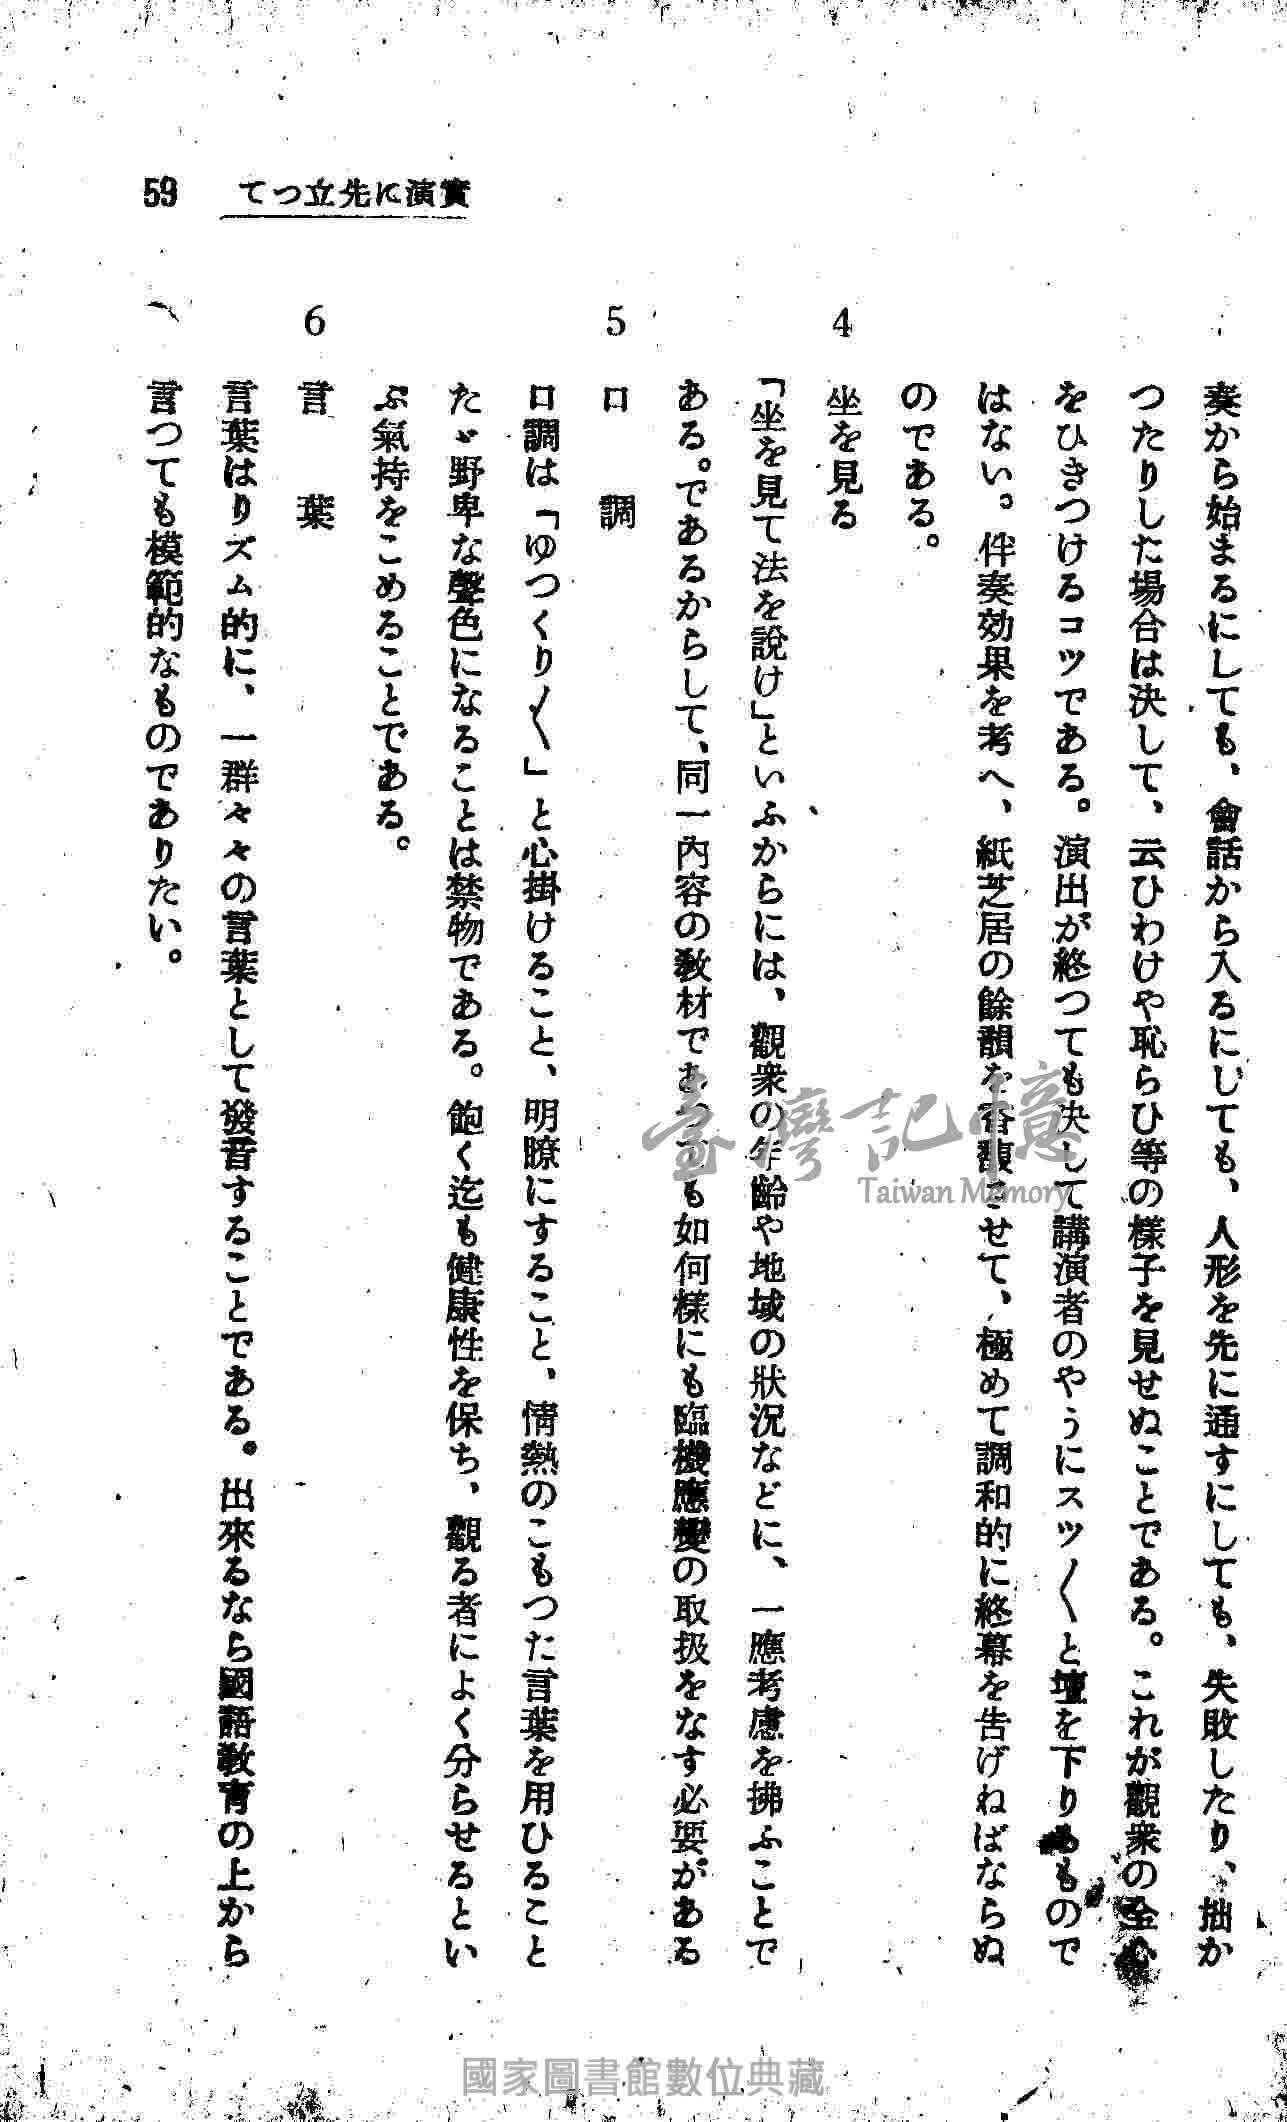 59
てつ立先に演實
奏から始まるにしても、會話から入るにしても、人形を先に通すにしても、失敗したり、拙か
つたりした場合は決して、云ひわけや恥らひ等の樣子を見せぬことである。これが觀衆の全心
をひきつけるコツである。演出が終つても決して講演者のやうにスツ〱と壇を下りるもので
はない。伴奏効果を考へ、紙芝居の餘韻をさせて、極めて調和的に終幕を告げねばならぬ
のである。
4 坐を見る
「坐を見て法を說け」といふからには、觀衆の年齡や地域の狀況などに、一應考慮を拂ふことで
ある。であるからして、同一內容の敎材であつても如何樣にも臨機應變の取扱をなす必要がある
5 口調
口調は「ゆつくり〱」と心掛けること、明瞭にすること、情熱のこもつた言葉を用ひること
たゞ野卑な聲色になることは禁物である。飽く迄も健康性を保ち、觀る者によく分らせるとい
ぶ氣持をこめることである。
6 言葉
言葉はリズム的に、一群々々の言葉として發音することである。出來るなら國語敎育の上から
言つても模範的なものでありたい。
臺灣記憶
Taiwan Memory
國家圖書館數位典藏